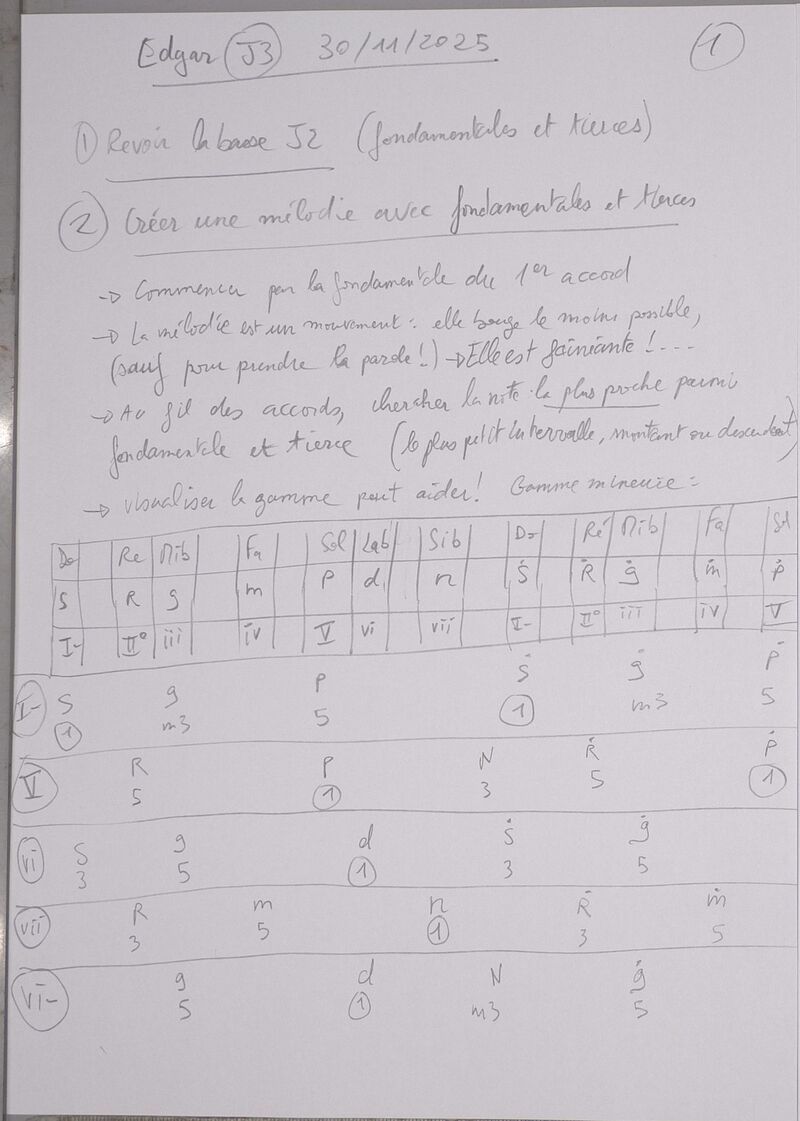 Edgar J3 30/11/2025 1
① Revoir la basse J2 (fondamentales et tierces)
② Créer une mélodie avec fondamentales et tierces
→ Commencer par la fondamentale du 1er accord
→ La mélodie est un mouvement : elle bouge le moins possible,
(sauf pour prendre la parole !) → Elle est fainiante !....
→ Au fil des accords, chercher la note la plus proche parmi
fondamentale et tierce (le plus petit intervalle, montant ou descendant)
→ visualiser la gamme peut aider ! Gamme mineure =
Do Re Mib Fa Sol Lab Sib Do Ré Mib Fa Sol
S R g m P d n Ṡ Ṙ ġ ṁ Ṗ
I- II° iii iv V vi vii I- II° iii iv V
I- S g P Ṡ ġ Ṗ
① m3 5 ① m3 5
V R P N Ṙ Ṗ
5 ① 3 5 ①
vi S g d Ṡ ġ
3 5 ① 3 5
vii R m n Ṙ ṁ
3 5 ① 3 5
vi- g d N ġ
5 ① m3 5